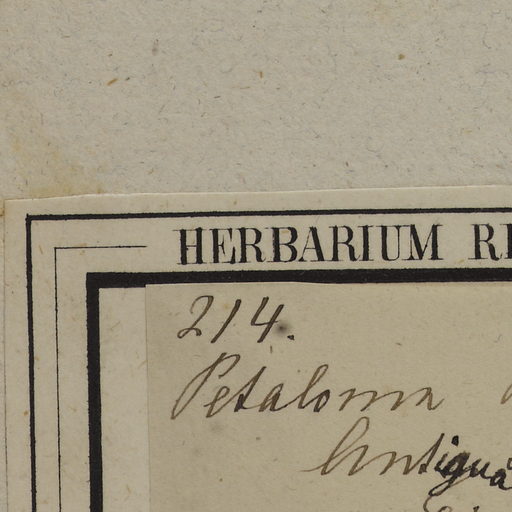 HERBARIUM
214.
Petaloma
Antigua